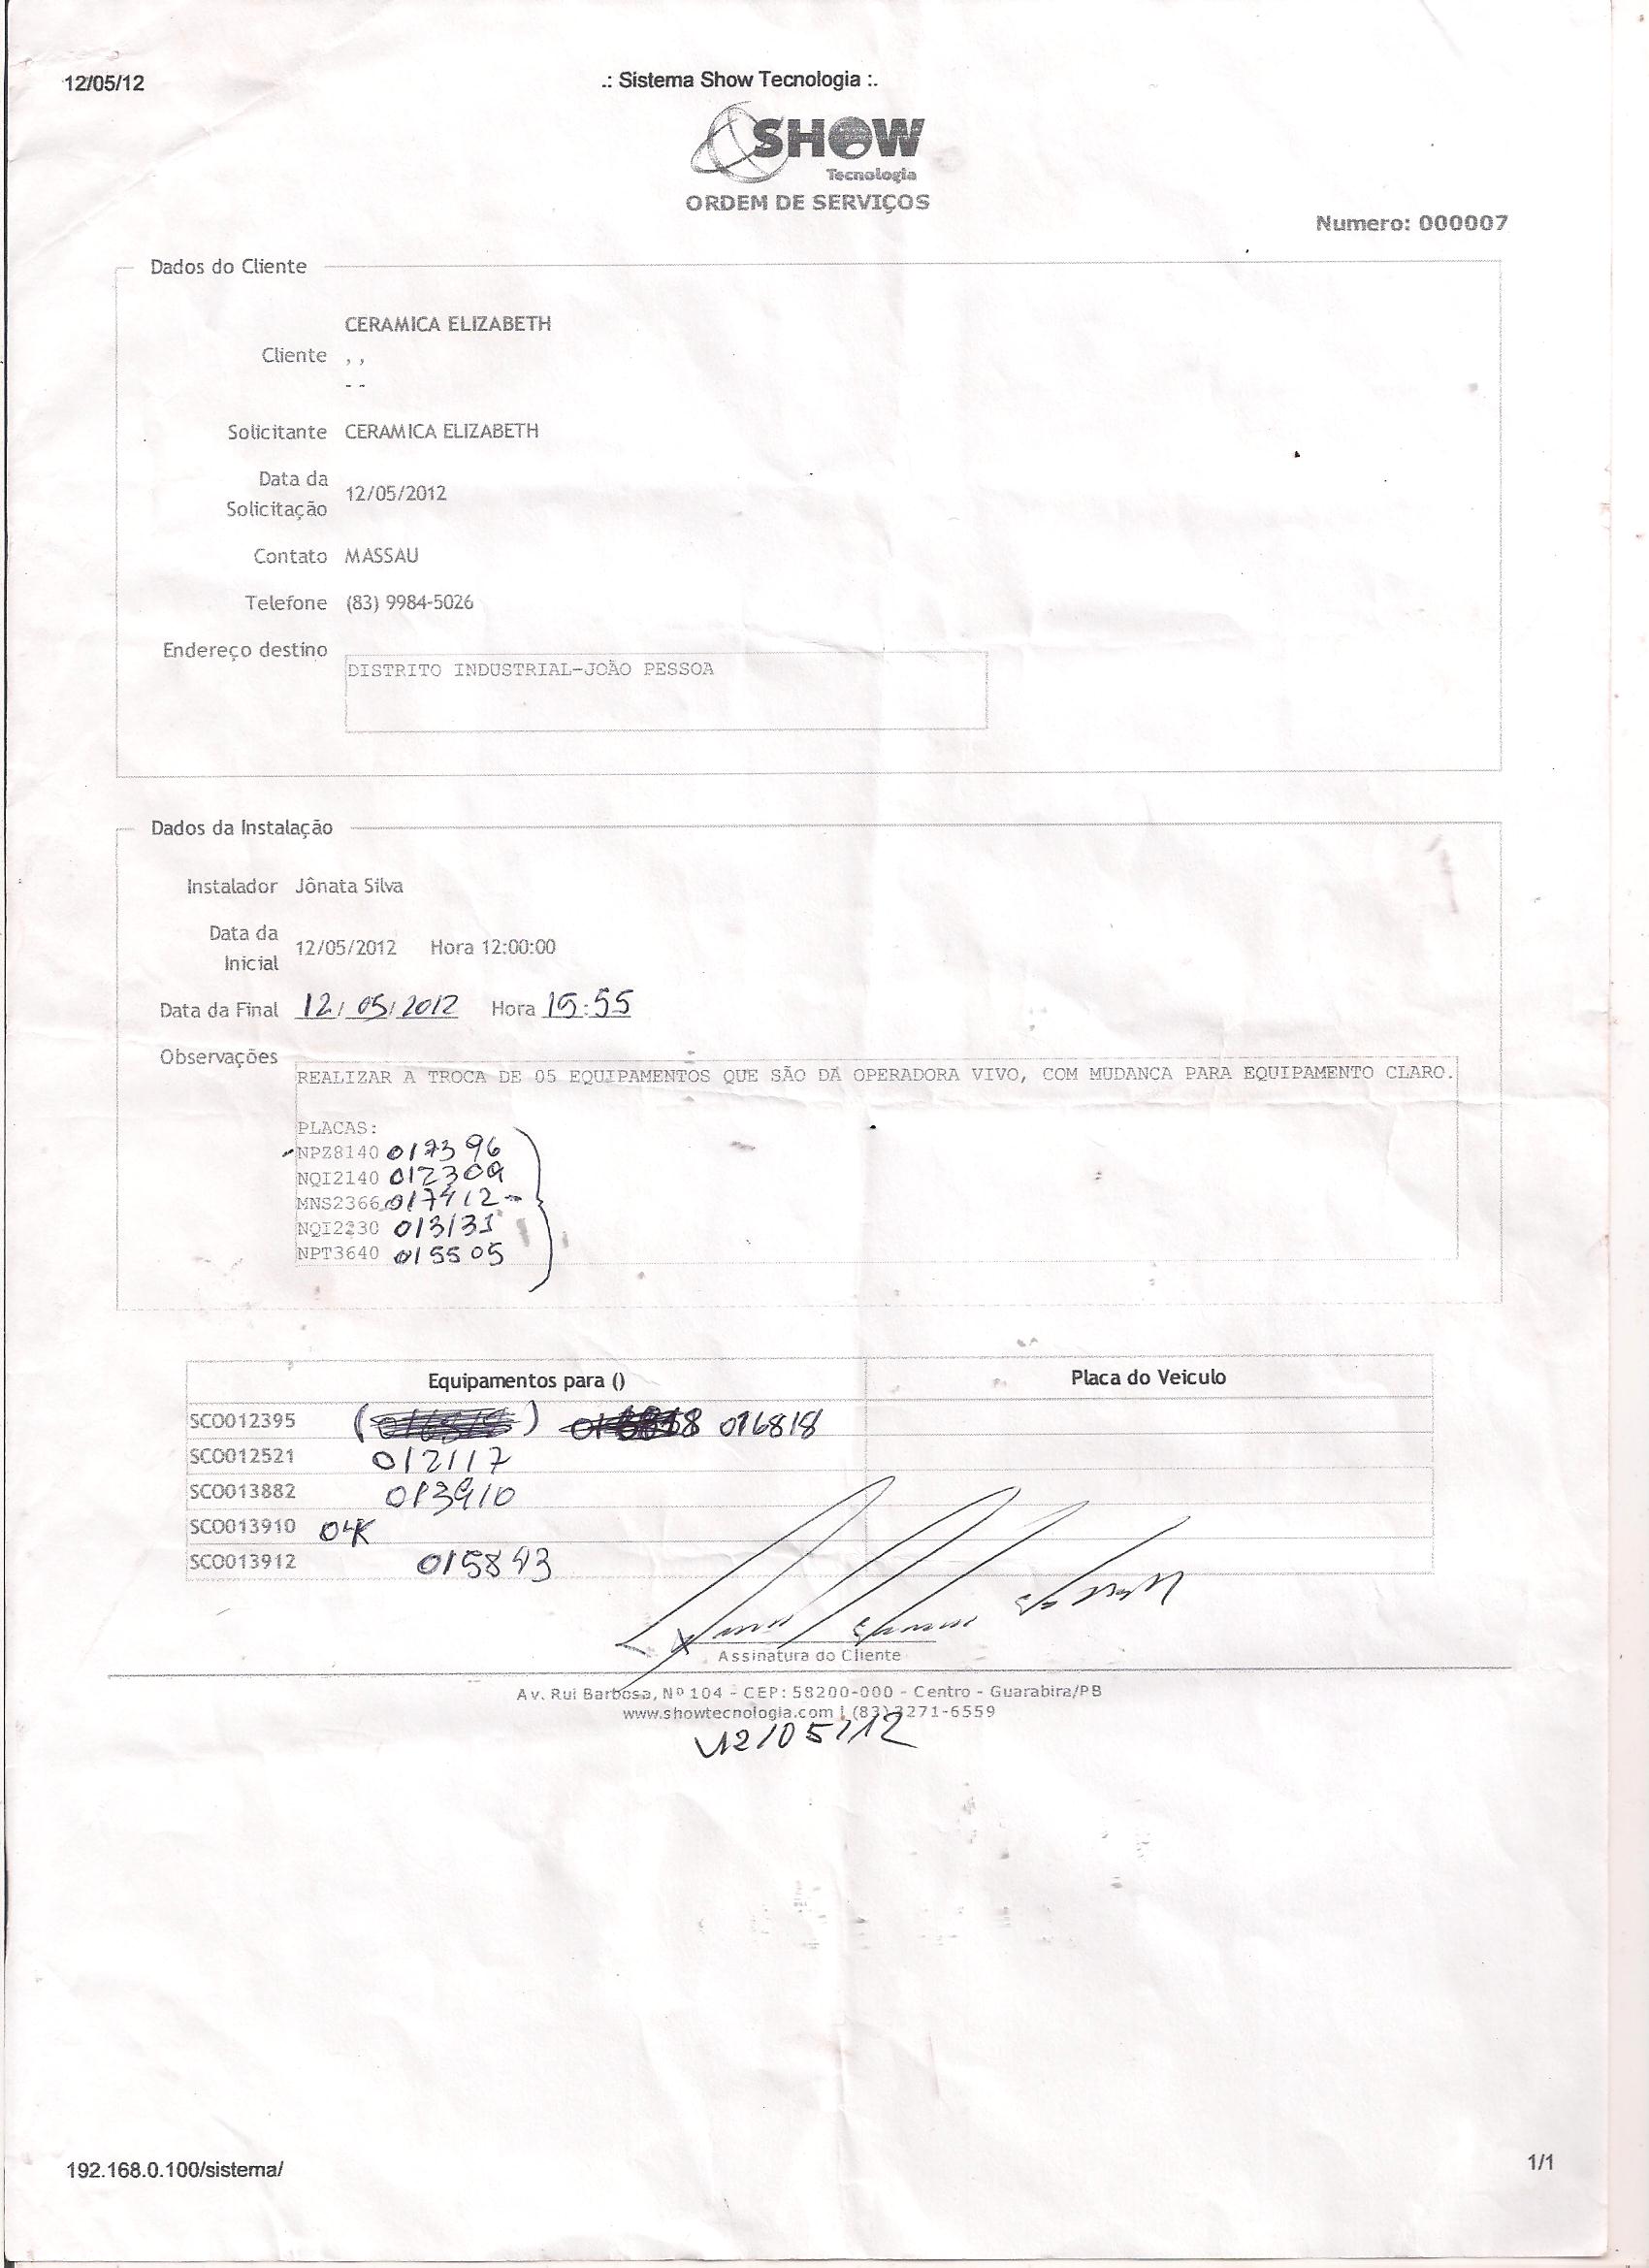 12/05/12
.: Sistema Show Tecnologia :.
SHOW
Tecnologia
ORDEM DE SERVIÇOS
Numero: 000007
Dados do Cliente
CERAMICA ELIZABETH
Cliente , ,
- -
Solicitante CERAMICA ELIZABETH
Data da
Solicitação 12/05/2012
Contato MASSAU
Telefone (83) 9984-5026
Endereço destino
DISTRITO INDUSTRIAL-JOÃO PESSOA
Dados da Instalação
Instalador Jônata Silva
Data da
Inicial 12/05/2012 Hora 12:00:00
Data da Final 12/05/2012 Hora 15:55
Observações
REALIZAR A TROCA DE 05 EQUIPAMENTOS QUE SÃO DA OPERADORA VIVO, COM MUDANCA PARA EQUIPAMENTO CLARO.
PLACAS:
NPZ8140 017396
NQI2140 012309
MNS2366 017412
NQI2230 013131
NPT3640 015505
Equipamentos para () Placa do Veiculo
SCO012395 016818
SCO012521 012117
SCO013882 013910
SCO013910 OK
SCO013912 015843
Assinatura do Cliente
Av. Rui Barbosa, Nº 104 - CEP: 58200-000 - Centro - Guarabira/PB
www.showtecnologia.com | (83) 3271-6559
12/05/12
192.168.0.100/sistema/
1/1